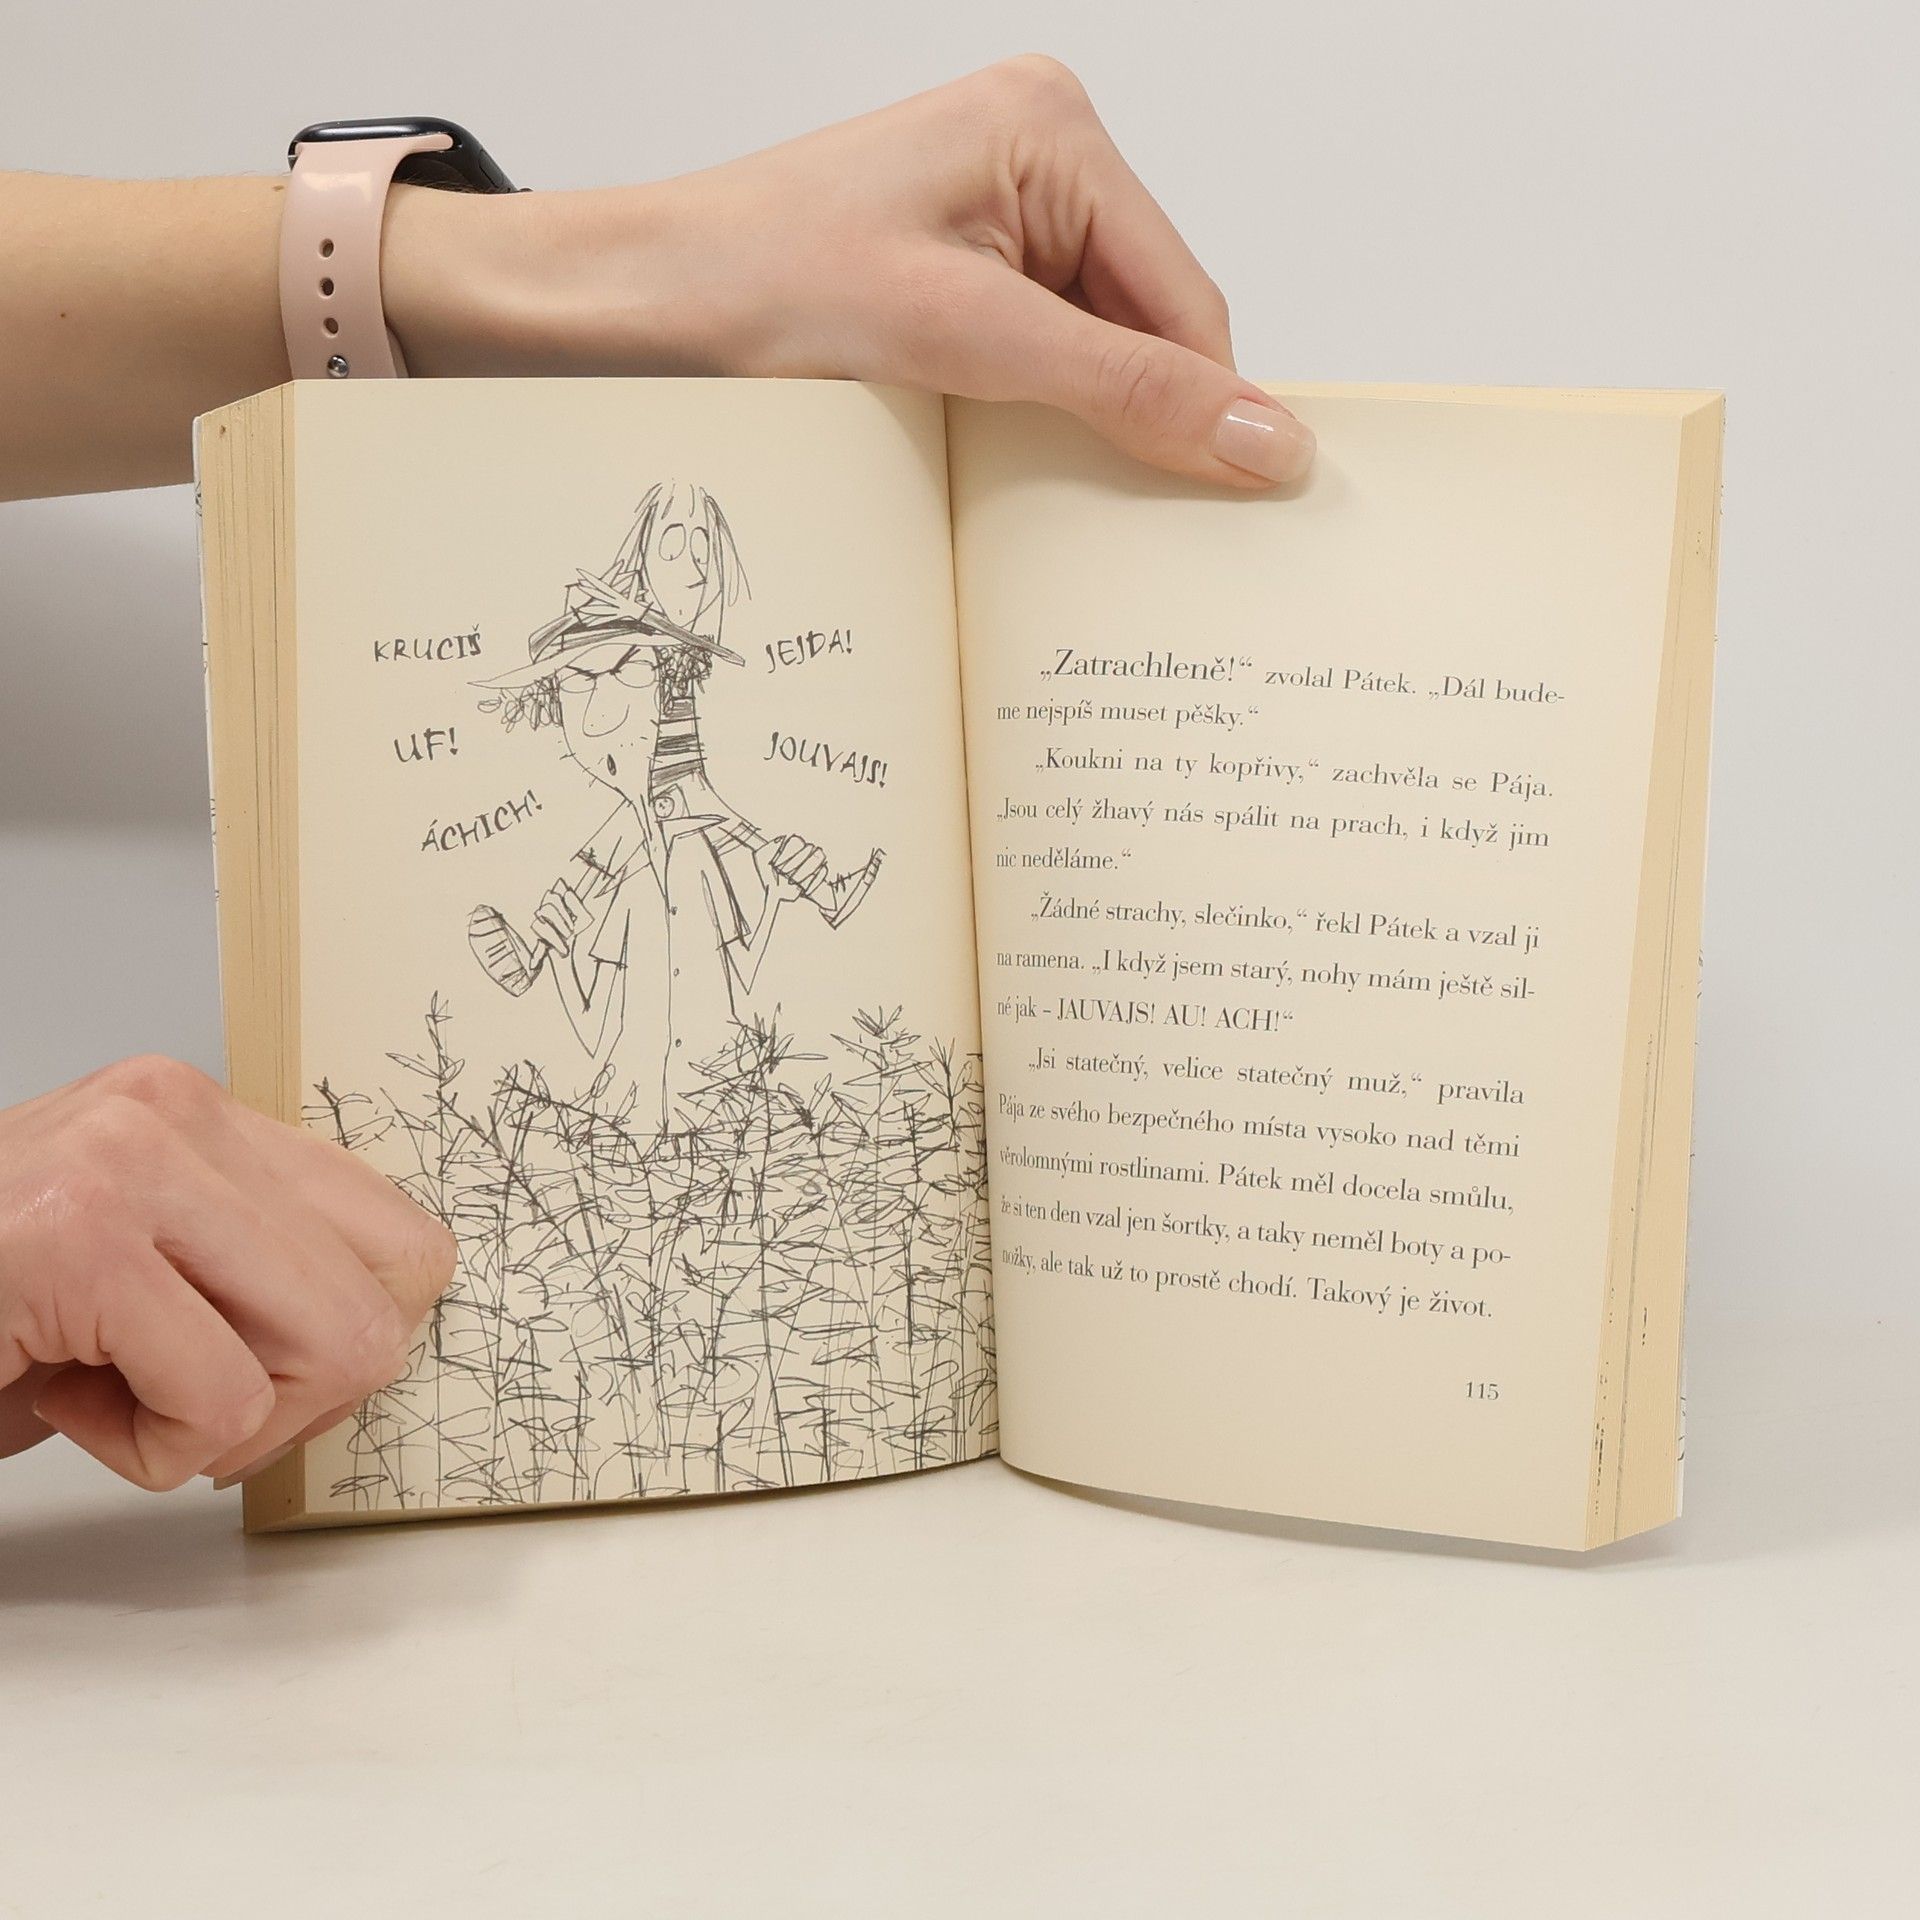 KRUCIŠ
JEJDA!
UF!
JOUVAJS!
ÁCHICH!
„Zatrachleně!“ zvolal Pátek. „Dál bude-
me nejspíš muset pěšky.“
„Koukni na ty kopřivy,“ zachvěla se Pája.
„Jsou celý žhavý nás spálit na prach, i když jim
nic neděláme.“
„Žádné strachy, slečinko,“ řekl Pátek a vzal ji
na ramena. „I když jsem starý, nohy mám ještě sil-
né jak – JAUVAJS! AU! ACH!“
„Jsi statečný, velice statečný muž,“ pravila
Pája ze svého bezpečného místa vysoko nad těmi
věrolomnými rostlinami. Pátek měl docela smůlu,
že si ten den vzal jen šortky, a taky neměl boty a po-
nožky, ale tak už to prostě chodí. Takový je život.
115